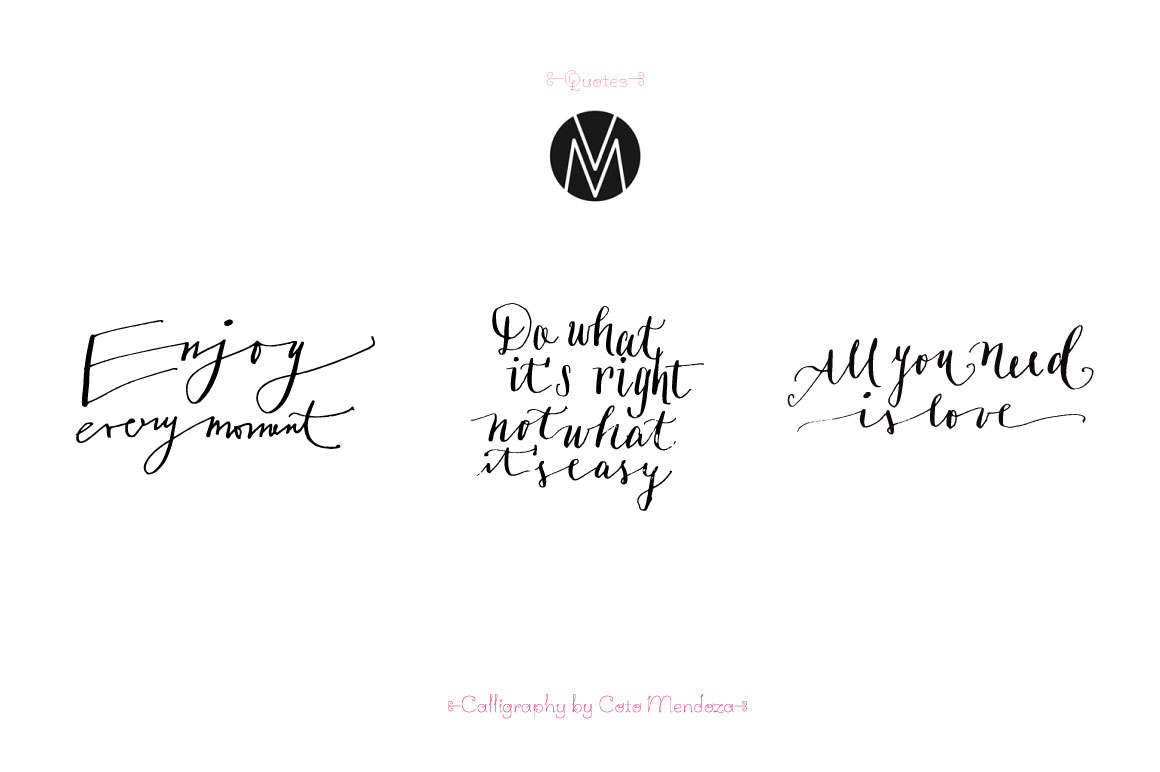 Quotes
M
Enjoy
every moment
Do what
it's right
not what
it's easy
All you need
is love
Calligraphy by Coto Mendoza